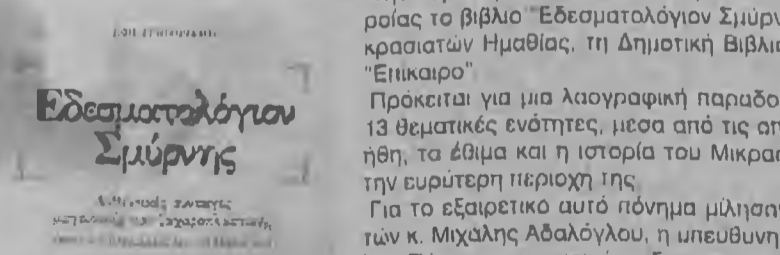 Εδεσματολόγιον
Σμύρνης
ροίας το βιβλίο "Εδεσματολόγιον Σμύρν
κρασιατών Ημαθίας, τη Δημοτική Βιβλιο
"Επίκαιρο"
Πρόκειται για μια λαογραφική παραδο
13 θεματικές ενότητες, μέσα από τις οπ
ήθη, τα έθιμα και η ιστορία του Μικρασ
την ευρύτερη περιοχή της.
Για το εξαιρετικό αυτό πόνημα μίλησαν
τών κ. Μιχάλης Αδαλόγλου, η υπεύθυνη